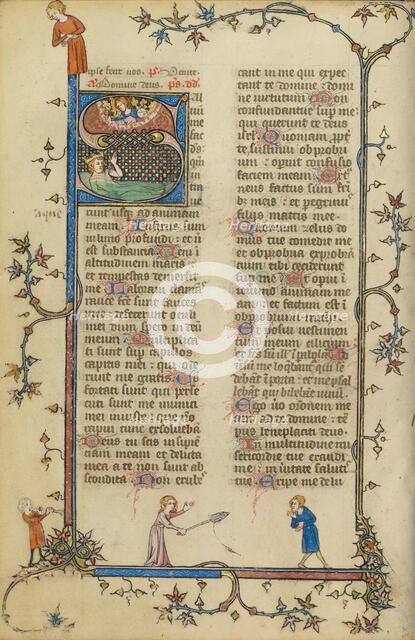 ipse fecit nos. ps. Venite
Domine deus. ps. dd.
me
fac
aque
trunt usqz ad animam
meam. Infixus sum
in limo profundi: et n
est substantia. Veni in
altitudinem maris
et tempestas demersit
me. Laboravi clamans
rauce fce sunt fauces
mee: defecerunt oculi
mei dum spero in deum
meum. Multiplica
ti sunt sup capillos
capitis mei: qui ode
runt me gratis. Con
fortati sunt qui perse
cuti sunt me inimici
mei iniuste: que no ra
pui tunc exsolueba
Deus tu scis insipien
ciam meam et delicta
mea a te non sunt abs
condita. Non erube
cant in me qui expec
tant te domine: domi
ne virtutum. Non
confundantur sup me
qui querunt te deus
isrl. Quoniam ppt
te sustinui obprobriu
um: operuit confusio
faciem meam. Ext
neus factus sum fri
bz meis: et peregrinus
filiis matris mee.
Quoniam zelus do
mus tue comedit me
et obprobria exprobra
cium tibi ceciderunt
sup me. Et operui i
ieiunio animam me
am: et factum est i
obprobrium michi.
Et posui vestimen
tum meum cilicium:
et fcs sum ill i pabola.
me loqbant qui se
debat i porta: et i me psal
lebat qui bibebat vinu.
Ego vo oronem me
am ad te domine: te
pus beneplaciti deus.
In multitudine mi
sericordie tue exaudi
me: in vitate saluti
tue. Eripe me de lu